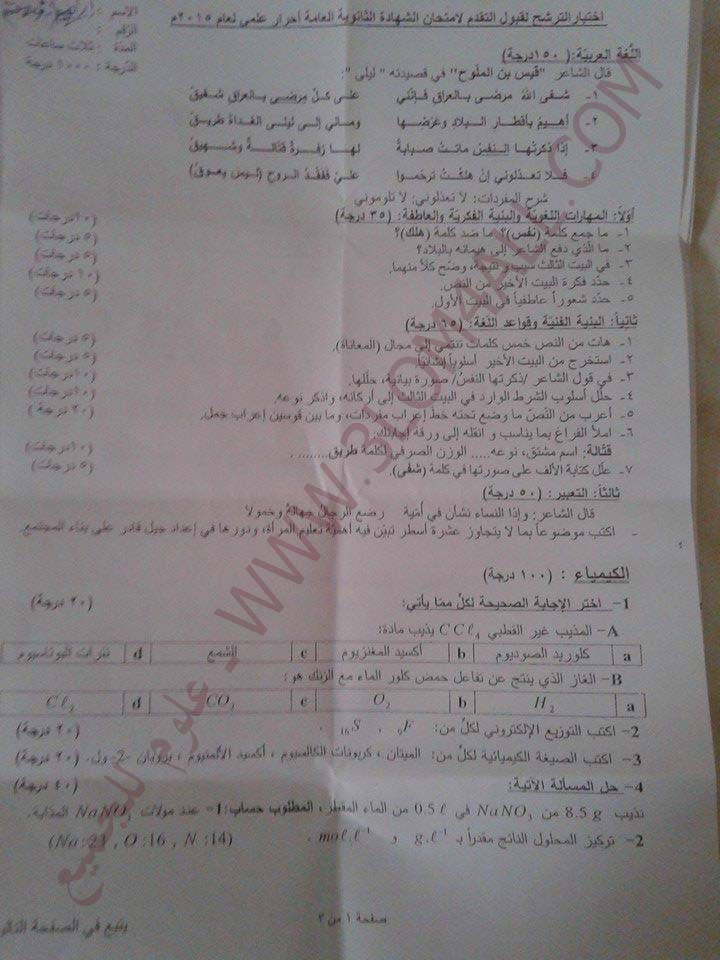 اختبار الترشح لقبول التقدم لامتحان الشهادة الثانوية العامة أحرار علمي لعام ٢٠١٥م
الاسم :
الرقم :
المدة : ثلاث ساعات
الدرجة : ١٠٠٠ درجة
اللغة العربية: (١٥٠ درجة)
قال الشاعر "قيس بن الملوح" في قصيدته " ليلى ":
١- شفى الله مرضى بالعراق فإنني على كل مرضى بالعراق شفيق
٢- أهيم بأقطار البلاد وعرضها ومالي إلى ليلى الغداة طريق
٣- إذا ذكرتها النفس ماتت صبابة لها زفرة قتالة وشهيق
٤- فلا تعذلوني إن هلكت ترحموا علي ففقد الروح (ليس يعوق)
شرح المفردات: لا تعذلوني: لا تلوموني
أولاً: المهارات اللغوية والبنية الفكرية والعاطفة: (٣٥ درجة)
١- ما جمع كلمة (نفس)؟ ما ضد كلمة (هلك)؟ (١٠ درجات)
٢- ما الذي دفع الشاعر إلى هيمانه بالبلاد؟ (٥ درجات)
٣- في البيت الثالث سبب ونتيجة، وضّح كلاً منهما. (٥ درجات)
٤- حدّد فكرة البيت الأخير من النص. (١٠ درجات)
٥- حدّد شعوراً عاطفياً في البيت الأول. (٥ درجات)
ثانياً: البنية الفنية وقواعد اللغة: (٦٥ درجة)
١- هات من النص خمس كلمات تنتمي إلى مجال (المعاناة). (٥ درجات)
٢- استخرج من البيت الأخير أسلوباً إنشائياً. (٥ درجات)
٣- في قول الشاعر /ذكرتها النفس/ صورة بيانية، حلّلها. (١٠ درجات)
٤- حلّل أسلوب الشرط الوارد في البيت الثالث إلى أركانه، واذكر نوعه. (١٠ درجات)
٥- أعرب من النّص ما وضع تحته خط إعراب مفردات، وما بين قوسين إعراب جمل. (٢٠ درجة)
٦- املأ الفراغ بما يناسب و انقله إلى ورقة إجابتك:
قتالة: اسم مشتق، نوعه..... الوزن الصرفي لكلمة طريق........ . (١٠ درجات)
٧- علّل كتابة الألف على صورتها في كلمة (شفى). (٥ درجات)
ثالثاً: التعبير: (٥٠ درجة)
قال الشاعر: وإذا النساء نشأن في أمية رضع الرجال جهالة وخمولا
- اكتب موضوعاً بما لا يتجاوز عشرة أسطر تبيّن فيه أهمية تعليم المرأة، ودورها في إعداد جيل قادر على بناء المجتمع
الكيمياء : (١٠٠ درجة)
1- اختر الإجابة الصحيحة لكلّ ممّا يأتي: (٢٠ درجة)
A- المذيب غير القطبي CCℓ4 يذيب مادة:
a كلوريد الصوديوم b أكسيد المغنزيوم c الشمع d نترات البوتاسيوم
B- الغاز الذي ينتج عن تفاعل حمض كلور الماء مع الزنك هو:
a H2 b O2 c CO2 d Cℓ2
2- اكتب التوزيع الإلكتروني لكلّ من: 9F ، 16S . (٢٠ درجة)
3- اكتب الصيغة الكيميائية لكلّ من: الميتان ، كربونات الكالسيوم ، أكسيد الألمنيوم ، بروبان -2- ول. (٢٠ درجة)
4- حل المسألة الآتية: (٤٠ درجة)
نذيب 8.5 g من NaNO3 في 0.5 ℓ من الماء المقطر ، المطلوب حساب: 1- عدد مولات NaNO3 المذابة.
2- تركيز المحلول الناتج مقدراً بـ g.ℓ-1 و mol.ℓ-1 . (Na:23 , O:16 , N:14)
صفحة ١ من ٣
يتبع في الصفحة التالية
علوم للجميع - WWW.3LOM4ALL.COM